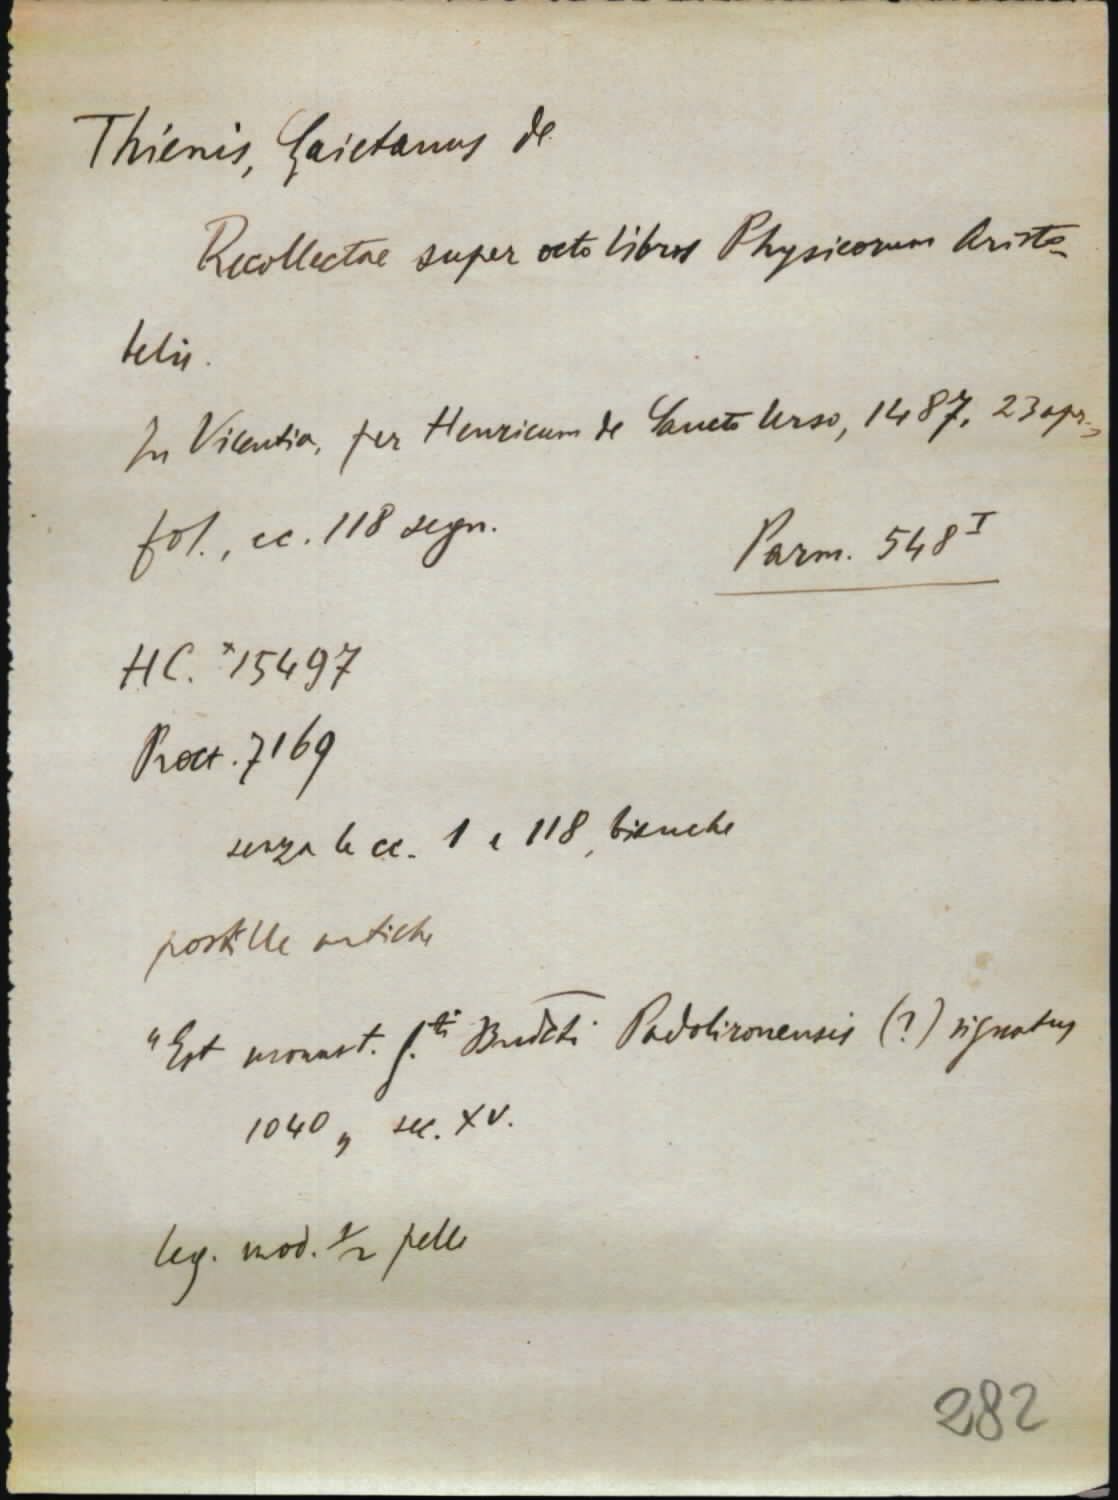 Thienis, Gaietanus de
Recollectae super octo libros Physicorum Aristo-
telis.
In Vicentia, per Henricum de Sancto Urso, 1487, 23 apr.,
fol., cc. 118 segn.
Parm. 548 I
HC. *15497
Proct. 7169
senza le cc. 1 e 118, bianche
postille antiche
"Est monast. S.ti Bndcti Padolironensis (?) signatus
1040„ sec. XV.
leg. mod. 1/2 pelle
282